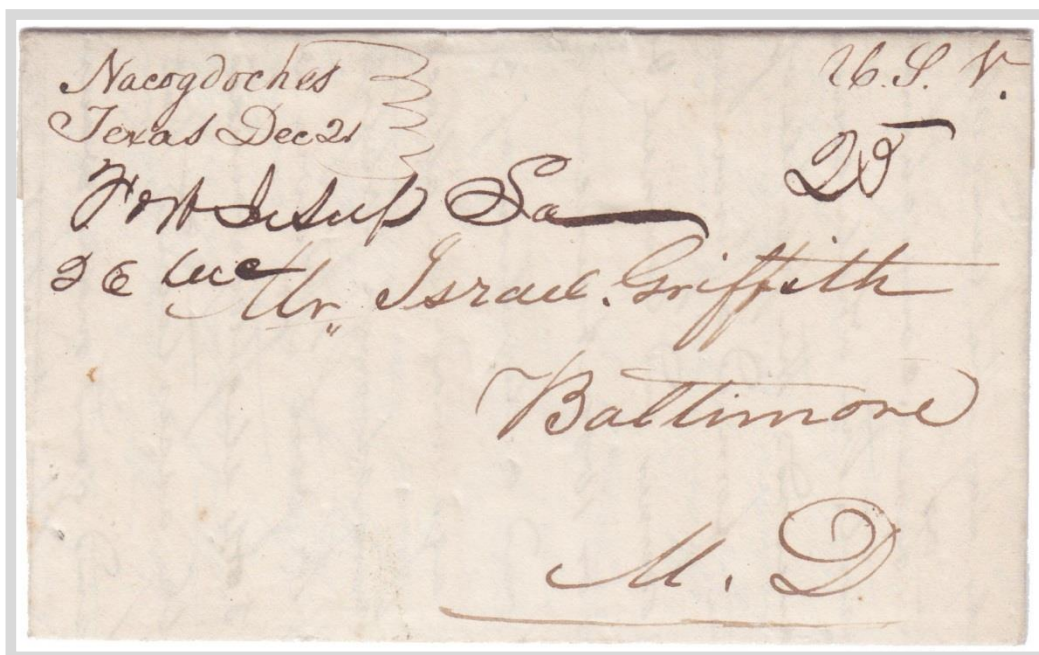 Nacogdoches
Texas Dec 21
U.S. V.
25
Fort Jesup La
26 Dec
Mr. Israel Griffith
Baltimore
M. D